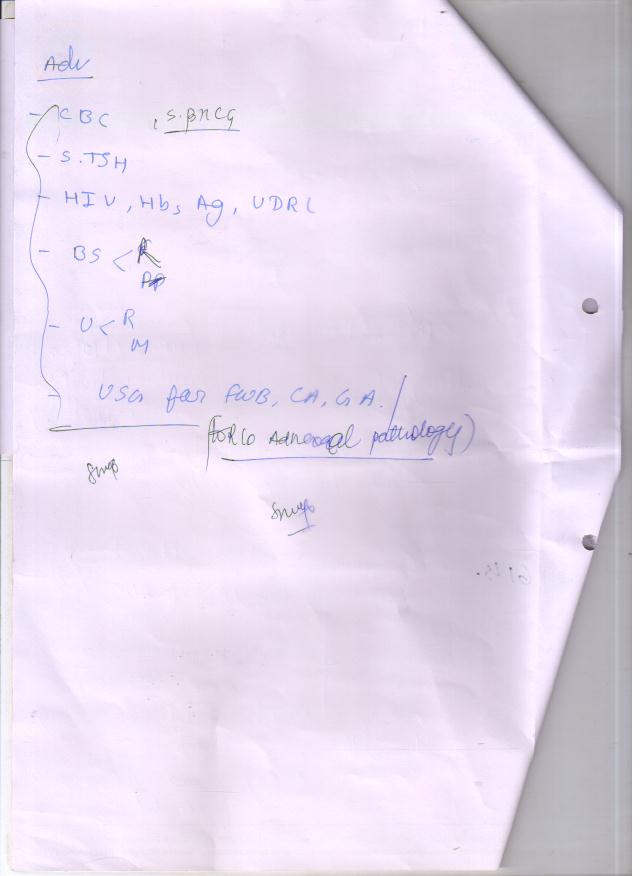 Adv
- CBC , S.BHCG
- S.TSH
- HIV, HbsAg, VDRL
- BS < F
PP
- U < R
M
- USG for FWB, CA, GA.
(TO R/O Adnexal pathology)